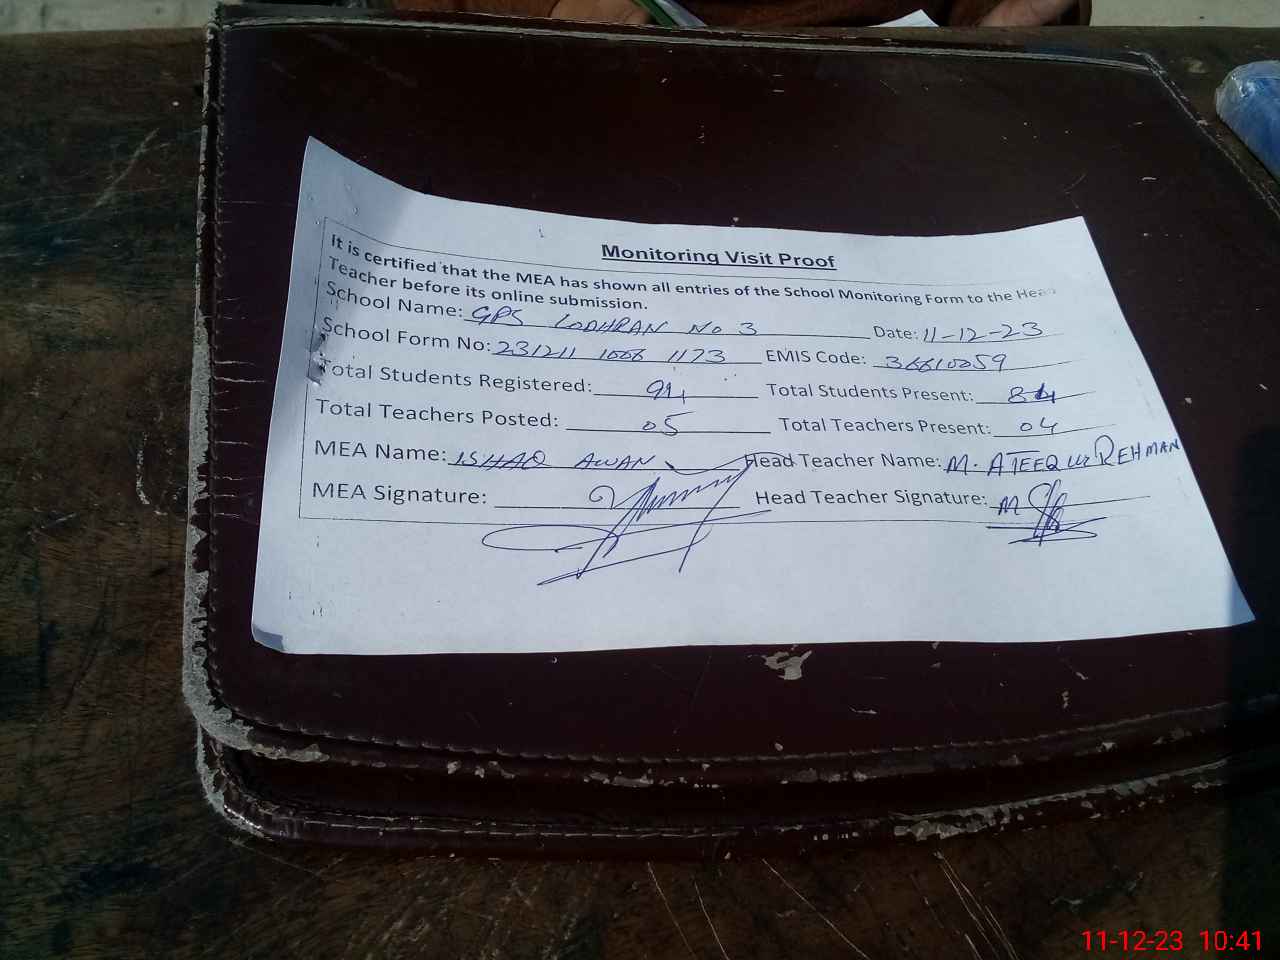 Monitoring Visit Proof
It is certified that the MEA has shown all entries of the School Monitoring Form to the Head
Teacher before its online submission.
School Name: GPS LODHRAN No 3 Date: 11-12-23
School Form No: 231211 1006 1173 EMIS Code: 36610059
Total Students Registered: 94 Total Students Present: 84
Total Teachers Posted: 05 Total Teachers Present: 04
MEA Name: ISHAQ AWAN Head Teacher Name: M. ATEEQ UR REHMAN
MEA Signature: Head Teacher Signature:
11-12-23 10:41